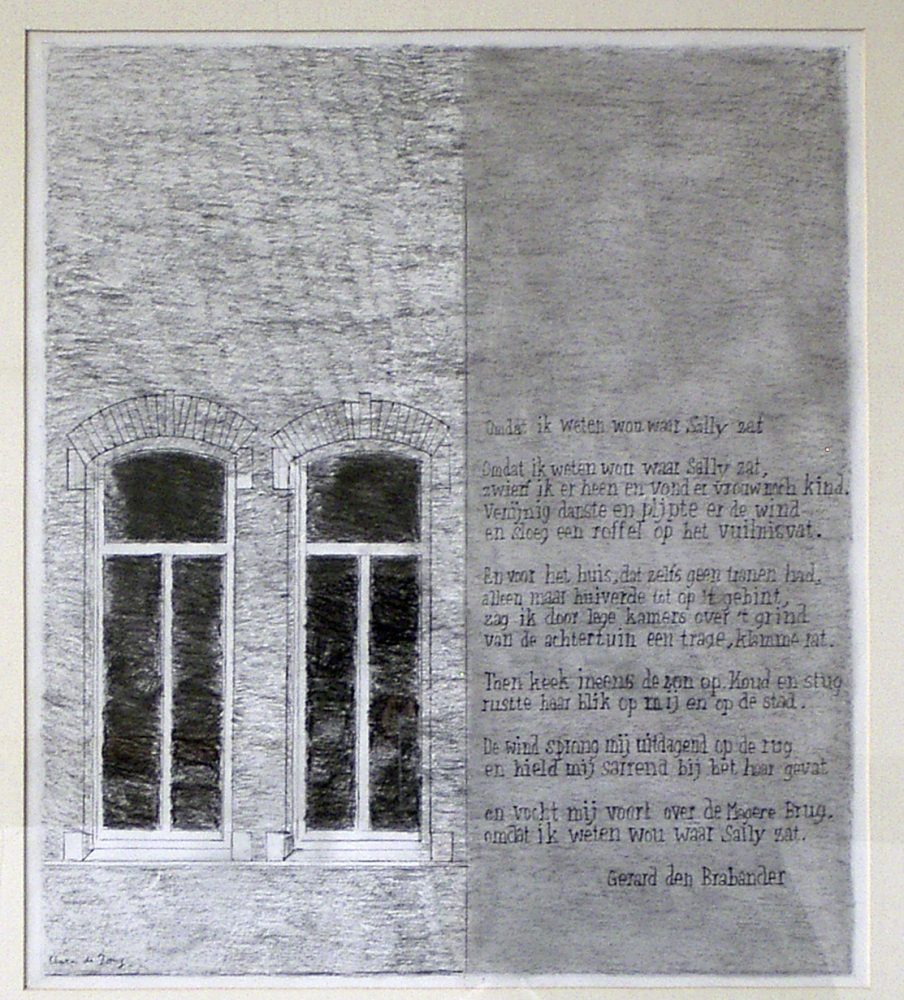 Omdat ik weten wou waar Sally zat
Omdat ik weten wou waar Sally zat,
zwierf ik er heen en vond er vrouw noch kind.
Venijnig danste en pijpte er de wind
en sloeg een roffel op het vuilnisvat.
En voor het huis, dat zelfs geen tranen had,
alleen maar huiverde tot op 't gebint,
zag ik door lege kamers over 't grind
van de achtertuin een trage, klamme rat.
Then keek ineens de zon op. Koud en stug
rustte haar blik op mij en op de stad.
De wind sprong mij uitdagend op de rug
en hield mij sarrend bij het haar gevat
en vocht mij voort over de Magere Brug,
omdat ik weten wou waar Sally zat.
Gerard den Brabander
de Jong